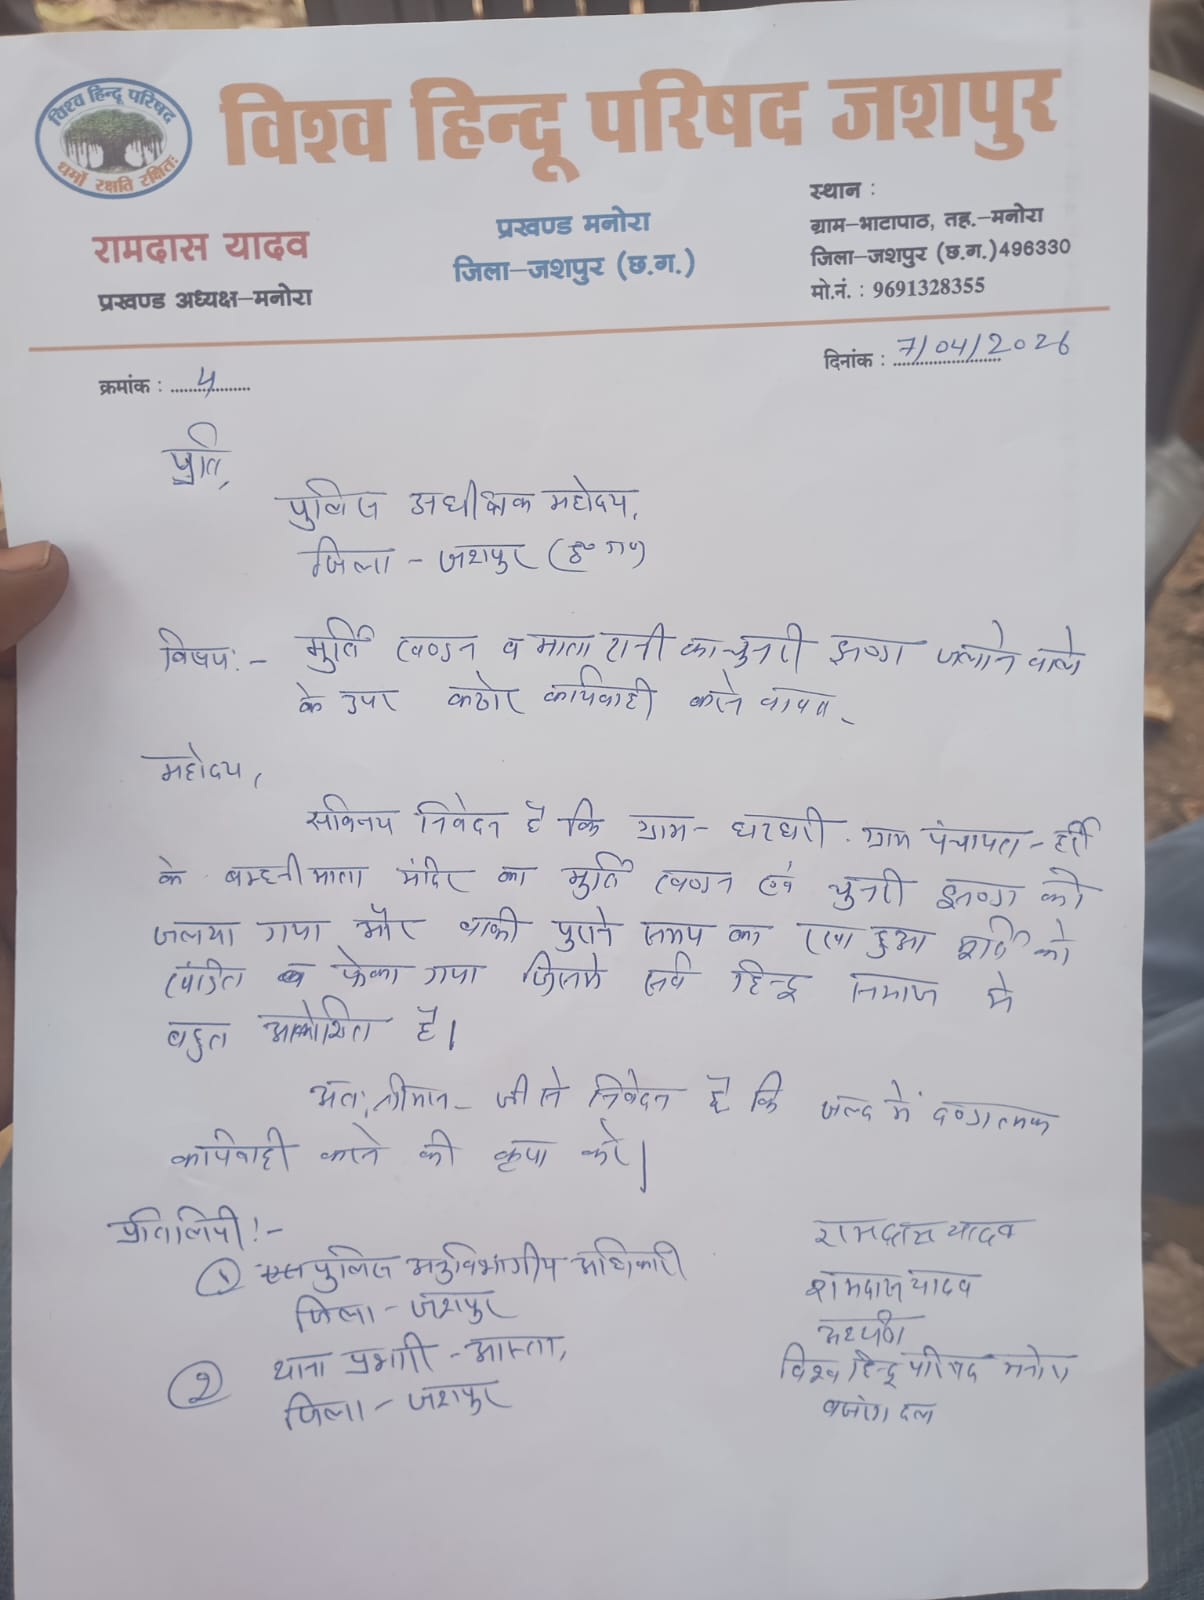 विश्व हिन्दू परिषद
धर्मो रक्षति रक्षितः
विश्व हिन्दू परिषद जशपुर
रामदास यादव
प्रखण्ड अध्यक्ष–मनोरा
प्रखण्ड मनोरा
जिला–जशपुर (छ.ग.)
स्थान :
ग्राम–भाटापाठ, तह.–मनोरा
जिला–जशपुर (छ.ग.)496330
मो.नं. : 9691328355
क्रमांक : 4
दिनांक : 7/04/2026
प्रति,
पुलिस अधीक्षक महोदय,
जिला – जशपुर (छ०ग०)
विषय:- मुर्ति खण्डन व माता रानी का चुनरी झण्डा जलाने वाले
के उपर कठोर कार्यवाही करने बाबत -
महोदय,
सविनय निवेदन है कि ग्राम – घरघरी ग्राम पंचायत – हर्री
के बम्हनी माता मंदिर का मुर्ति खण्डन एवं चुनरी झण्डा को
जलया गया और बाकी पुराने समय का रखा हुआ मुर्ति को
खंडित फेका गया जिसमे सर्व हिन्दू समाज मे
बहुत आक्रोशित है।
अतः श्रीमान – जी से निवेदन है कि जल्द में दण्डात्मक
कार्यवाही करने की कृपा करे।
प्रतिलिपी :-
① पुलिस अनुविभागीय अधिकारी
जिला – जशपुर
② थाना प्रभारी – आस्ता,
जिला – जशपुर
रामदास यादव
रामदास यादव
अध्यक्ष
विश्व हिन्दू परिषद मनोरा
बजरंग दल